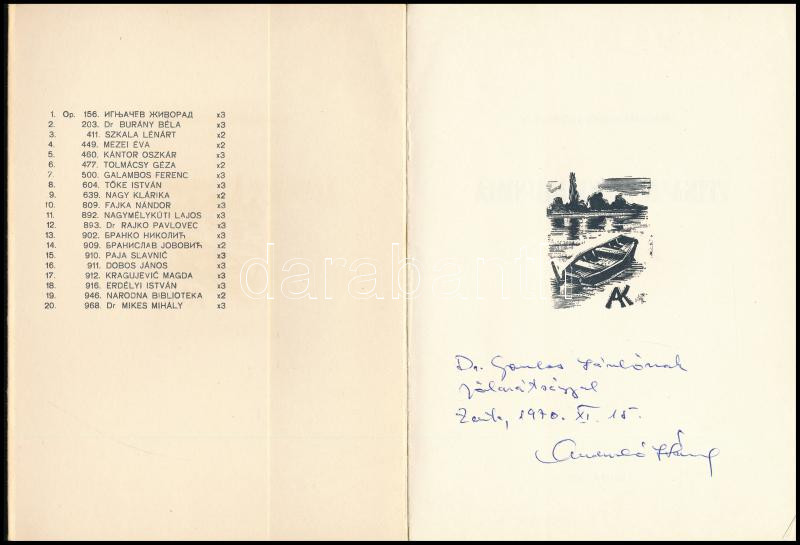 1. Op. 156. ИГЊАЧЕВ ЖИВОРАД x3
2. 203. Dr BURÁNY BÉLA x3
3. 411. SZKALA LÉNÁRT x2
4. 449. MEZEI ÉVA x2
5. 460. KÁNTOR OSZKÁR x3
6. 477. TOLMÁCSY GÉZA x2
7. 500. GALAMBOS FERENC x3
8. 604. TŐKE ISTVÁN x3
9. 639. NAGY KLÁRIKA x2
10. 809. FAJKA NÁNDOR x3
11. 892. NAGYMÉLYKÚTI LAJOS x3
12. 893. Dr RAJKO PAVLOVEC x3
13. 902. БРАНКО НИКОЛИЋ x3
14. 909. БРАНИСЛАВ ЈОВОВИЋ x2
15. 910. PAJA SLAVNIČ x3
16. 911. DOBOS JÁNOS x3
17. 912. KRAGUJEVIČ MAGDA x3
18. 916. ERDÉLYI ISTVÁN x3
19. 946. NARODNA BIBLIOTEKA x2
20. 968. Dr MIKES MIHÁLY x3
darabanth
AK
Dr.
jóbarátsággal
Zenta, 1970. XI. 15.